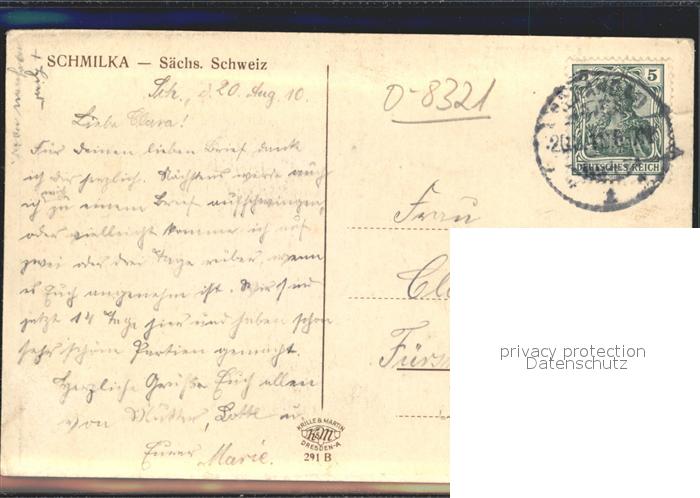 SCHMILKA — Sächs. Schweiz
Sch., d. 20. Aug. 10.
Liebe Clara!
Für deinen lieben Brief dankt
ich dir herzlich. Nächstens werde auch
ich mich zu einem Brief aufschwingen,
oder vielleicht komme ich auf
zwei oder drei Tage rüber, wenn
es Euch angenehm ist. Wir sind
jetzt 14 Tage hier und haben schon
sehr schöne Partien gemacht.
Herzliche Grüsse Euch allen
von Mutter, Lotte u.
Eurer Marie.
O-8321
5
DEUTSCHES REICH
Frau
Fürs
KRILLE & MARTIN
K&M
DRESDEN-A
291 B
privacy protection
Datenschutz